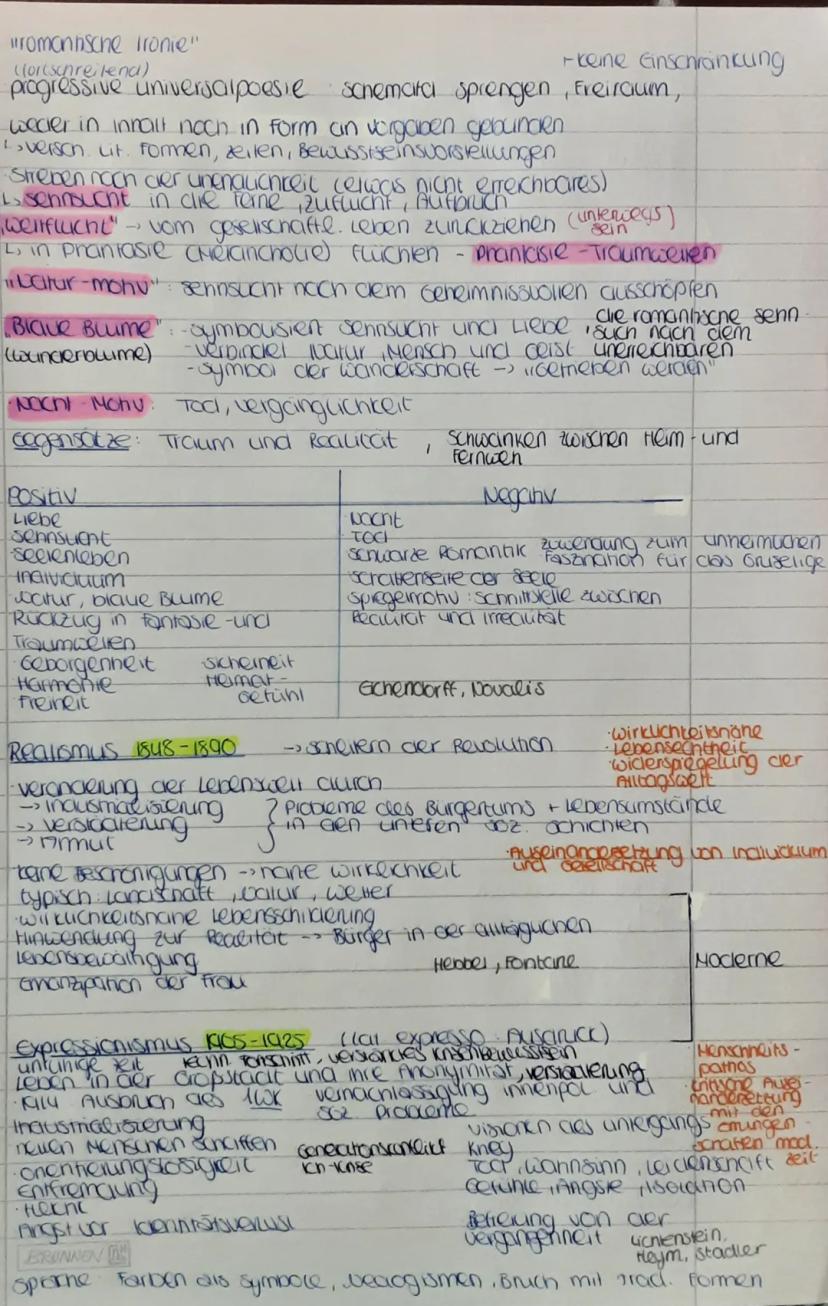 "romantische Ironie"
(fortschreitend)
+ keine Einschränkung
progressive universalpoesie schemata sprengen, Freiraum,
weder in Inhalt noch in Form an vorgaben gebunden
↳ versch. Lit. Formen, zeiten, Bewusstseinsvorstellungen
streben nach der unendlichkeit (etwas nicht erreichbares)
↳ sehnsucht in die Ferne, zuflucht, Aufbruch
"weltflucht" → vom gesellschaftl. Leben zurückziehen (unterwegs sein)
↳ in Phantasie (Melancholie) flüchten - Phantasie-Traumwelten
"Natur-motiv": sehnsucht nach dem Geheimnissvollen ausschöpfen
"Blaue Blume": - symbolisiert sehnsucht und Liebe, die romantische sehn
such nach dem
(wunderblume) - verbindet Natur, Mensch und Geist unerreichbaren
- symbol der wanderschaft → "getrieben werden"
Nacht-Motiv: Tod, vergänglichkeit
Gegensätze: Traum und Realität, schwanken zwischen Heim- und
Fernweh
Positiv Negativ
Liebe Nacht
sehnsucht Tod
seelenleben schwarze Romantik zuwendung zum unheimlichen
Faszination für das Gruselige
Individuum schattenseite der seele
Natur, blaue Blume spiegelmotiv: schnittstelle zwischen
Rückzug in Fantasie- und Realität und Irrealität
Traumwelten
Geborgenheit sicherheit
Harmonie Heimat-
Freiheit gefühl
Eichendorff, Novalis
Realismus 1848-1890 → scheitern der Revolution
· wirklichkeitsnähe
· Lebensechtheit
· widerspiegelung der
Alltagswelt
· veränderung der Lebenswelt durch
→ Industrialisierung } Probleme des Bürgertums + Lebensumstände
→ verstädterung in den unteren soz. schichten
→ Armut
· Auseinandersetzung von Individuum
und Gesellschaft
keine Beschönigungen → harte wirklichkeit
typisch: Landschaft, Natur, wetter
· wirklichkeitsnahe Lebensschilderung
Hinwendung zur Realität → Bürger in der alltäglichen
Lebensbewältigung
Hebbel, Fontane
Moderne
Emanzipation der Frau
Expressionismus 1905-1925 (lat expresso: Ausdruck)
unruhige zeit techn. Fortschritt, verstärktes
Leben in der Großstadt und ihre Anonymität, verstädterung
· 1914 Ausbruch des 1WK vernachlässigung innenpol und
soz probleme
Menschheits-
pathos
· kritische Ausei-
nandersetzung
mit den
errungen-
schaften mod.
zeit
Industrialisierung visionen des untergangs
neuen Menschen schaffen Generationskonflikt Krieg
· orientierungslosigkeit Ich-Krise Tod, wahnsinn, Leidenschaft
Entfremdung Gefühle, Ängste, Isolation
Angst vor Identitätsverlust Befreiung von der
vergangenheit
Lichtenstein,
Heym, Stadler
BRUNNEN
sprache: Farben als symbole, Neologismen, Bruch mit trad. Formen